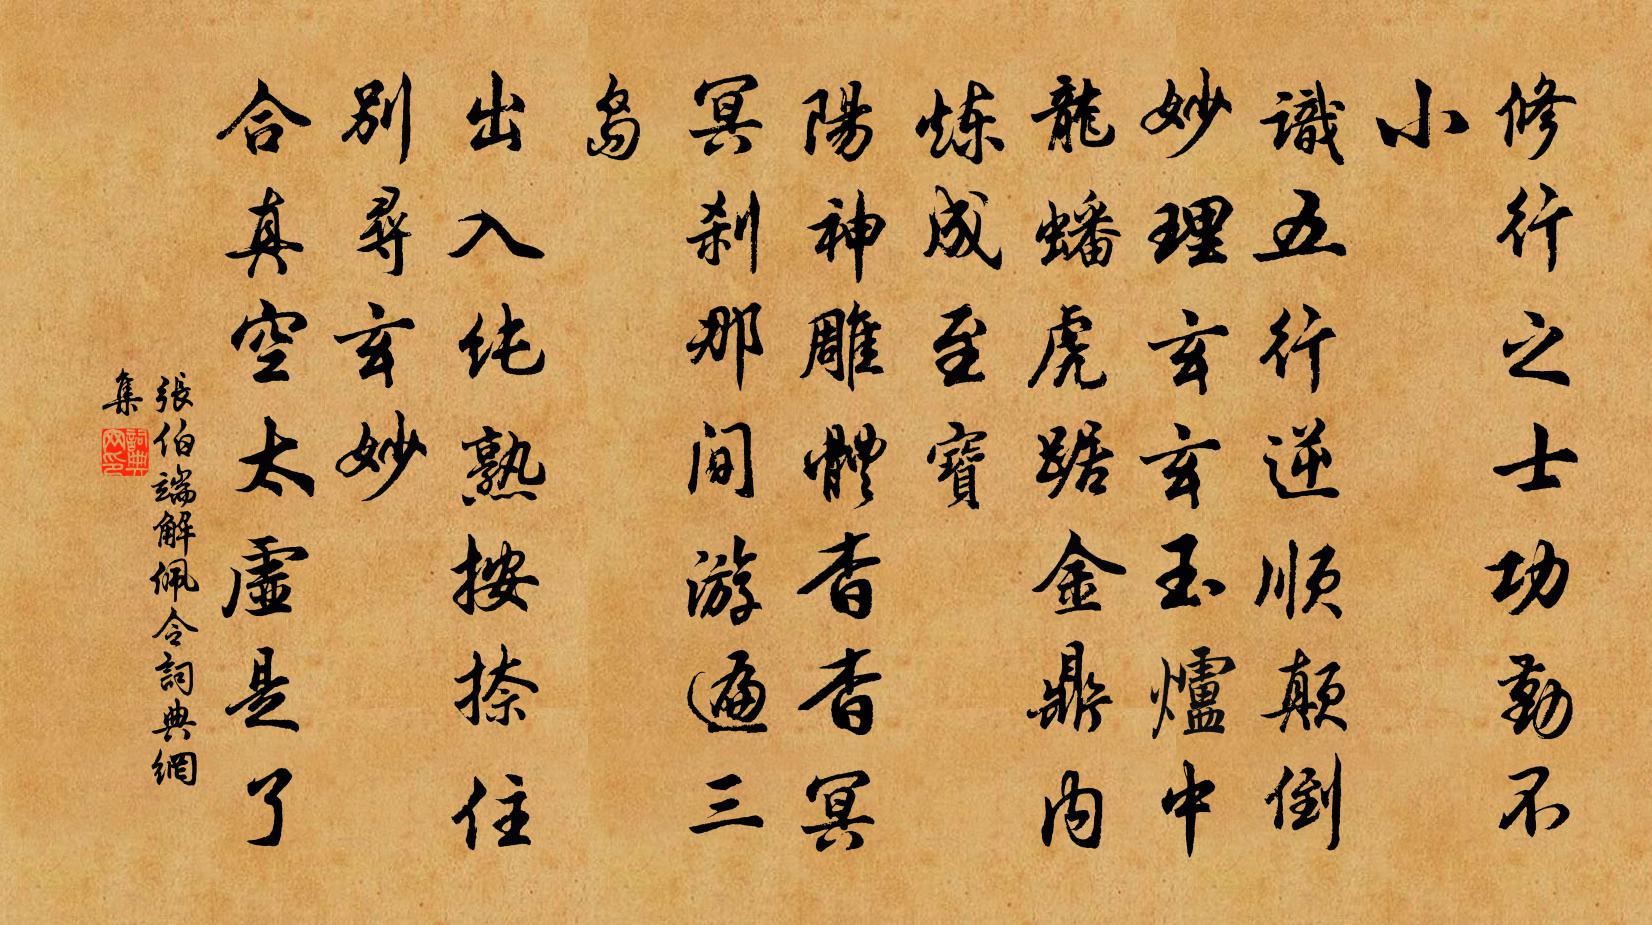 修行之士功勤不
小
識五行逆順顛倒
妙理玄玄玉爐中
龍蟠虎踞金鼎内
炼成至寶
陽神雕體杳杳冥
冥刹那间游遍三
島
出入纯熟按捺住
别尋玄妙
合真空太虛是了
張伯端解佩令詞典網
集
詞典網印